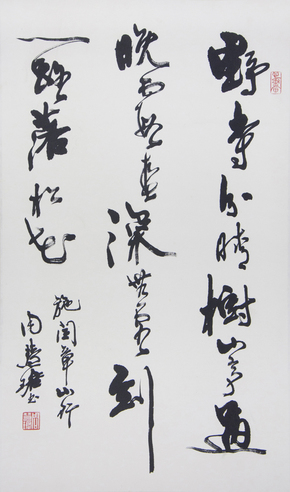 野寺分晴樹山亭過
晚霞春深無客到
一路落松花
施閏章山行
周慧珺